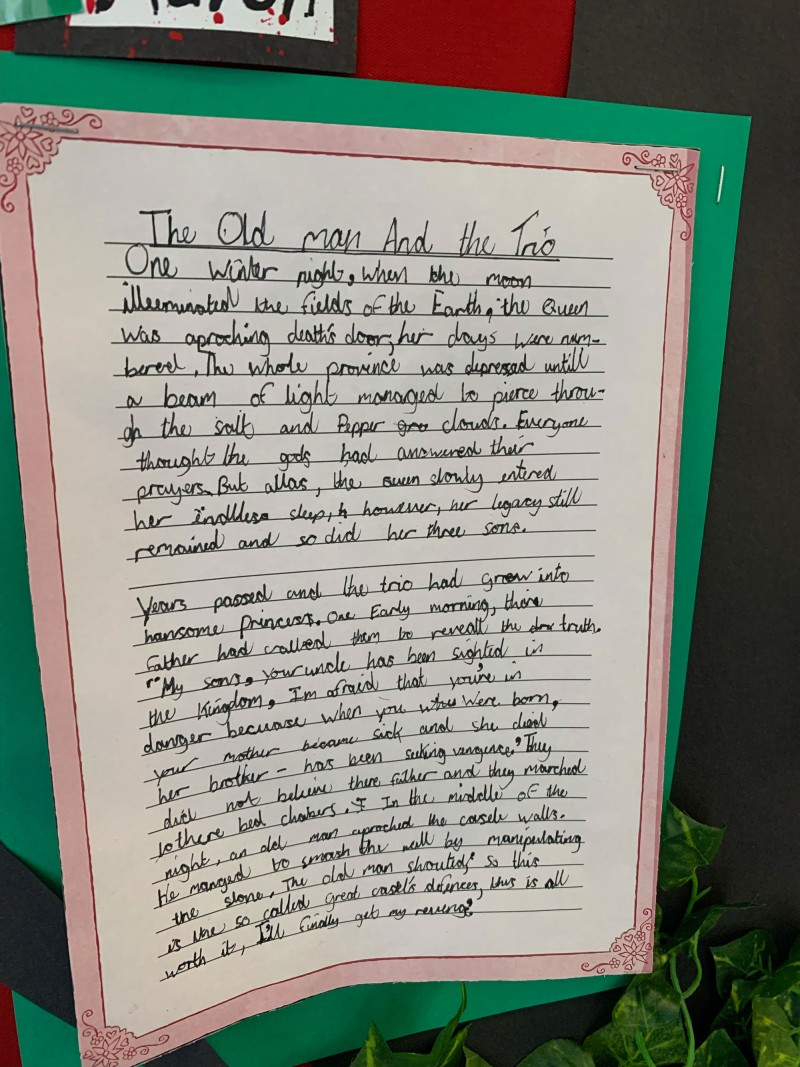 The Old man And the Trio
One winter night, when the moon
illeuminated the fields of the Earth, the Queen
was aproching death's door, her days were num-
bered, The whole province was depressed untill
a beam of light managed to pierce throu-
gh the salt and Pepper clouds. Everyone
thought the gods had answered their
prayers. But allas, the Queen slowly entered
her indlless sleep, however, her legacy still
remained and so did her three sons.
Years passed and the trio had grown into
hansome Princess. One Early morning, there
Father had called them to reveall the truth.
"My sons, your uncle has been sighted in
the Kingdom, I'm afraid that you're in
danger becuase when you were born,
your mother became sick and she died
her brother - has been seeking vengence." They
did not believe there father and they marched
to there bed chabers. In the middle of the
night, an old man aproched the casele walls.
He manged to smash the wall by manipulating
the stone. The old man shouted," so this
is the so called great casel's defences, this is all
worth it, I'll finally get my revenge"